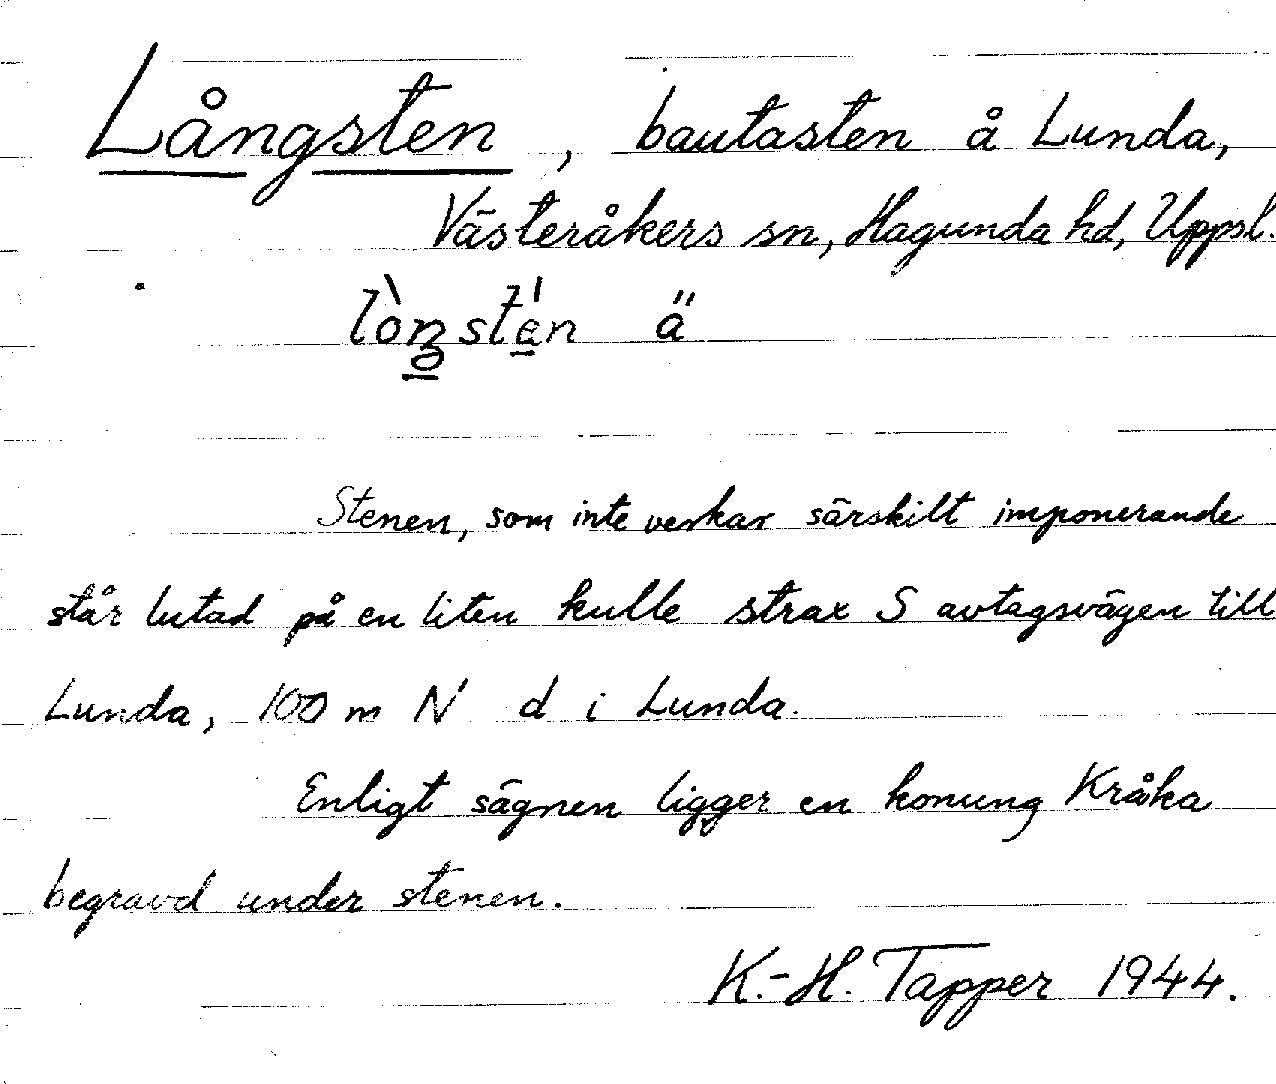 Långsten, bautasten å Lunda,
Västeråkers sn, Hagunda hd, Uppsl.
ä
Stenen, som inte verkar särskilt imponerande
står lutad på en liten kulle strax S avtagsvägen till
Lunda, 100 m N d i Lunda.
Enligt sägnen ligger en konung Kråka
begravd under stenen.
K.-H. Tapper 1944.